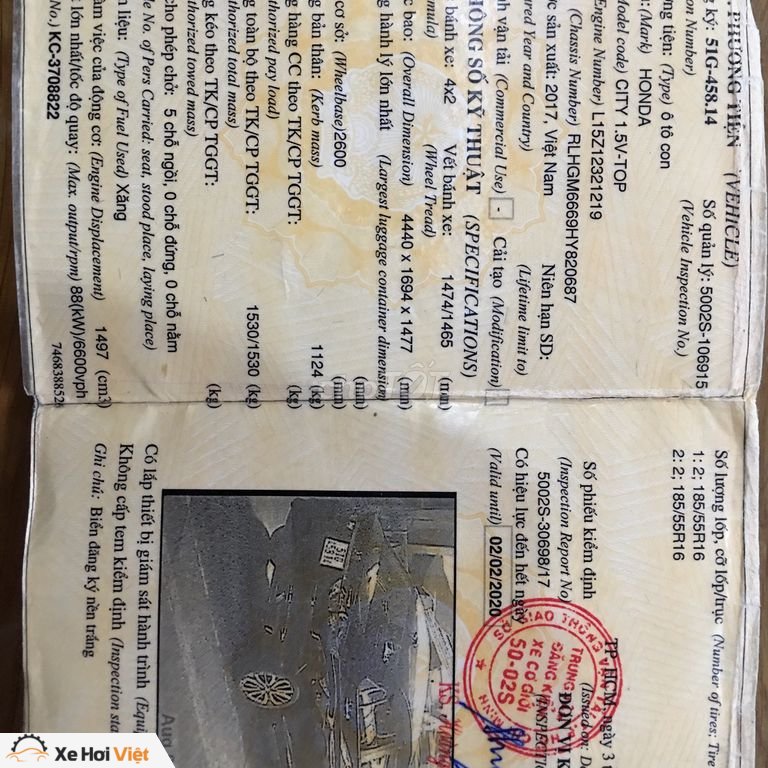 PHƯƠNG TIỆN (VEHICLE)
Số quản lý: 5002S-106915
ký: 51G-458.14
(Vehicle Inspection No.)
tiện: (Type) ô tô con
(Mark) HONDA
Model code) CITY 1.5V-TOP
Engine Number) L15Z12321219
(Chassis Number) RLHGM6669HY820687
sản xuất: 2017, Việt Nam
Niên hạn SD:
Year and Country)
(Lifetime limit to)
vận tải (Commercial Use) -
Cải tạo (Modification)
THÔNG SỐ KỸ THUẬT (SPECIFICATIONS)
bánh xe: 4x2
Vết bánh xe: 1474/1465 (mm)
(Wheel Tread)
bao: (Overall Dimension) 4440 x 1694 x 1477 (mm)
hàng hành lý lớn nhất (Largest luggage container dimension)
(mm)
cơ sở: (Wheelbase) 2600 (mm)
bản thân: (Kerb mass) 1124 (kg)
hàng CC theo TK/CP TGGT: (kg)
pay load)
toàn bộ theo TK/CP TGGT: 1530/1530 (kg)
total mass)
kéo theo TK/CP TGGT: (kg)
towed mass)
cho phép chở: 5 chỗ ngồi, 0 chỗ đứng, 0 chỗ nằm
No. of Pers Carried: seat, stood place, laying place)
liệu: (Type of Fuel Used) Xăng
làm việc của động cơ: (Engine Displacement) 1497 (cm3)
lớn nhất/tốc độ quay: (Max. output/rpm) 88(kW)/6600vph
No.) KC-3708822
Số lượng lốp, cỡ lốp/trục (Number of tires; Tire
1: 2; 185/55R16
2: 2; 185/55R16
Số phiếu kiểm định
(Inspection Report No)
5002S-30698/17
Có hiệu lực đến hết ngày
(Valid until) 02/02/2020
HCM, ngày 3
(Issued on:
ĐƠN VỊ
SỞ GIAO THÔNG
TRUNG
ĐĂNG
XE CƠ GIỚI
50-02S
Có lắp thiết bị giám sát hành trình
Không cấp tem kiểm định (Inspection
Ghi chú: Biển đăng ký nền trắng
Xe Hơi Việt